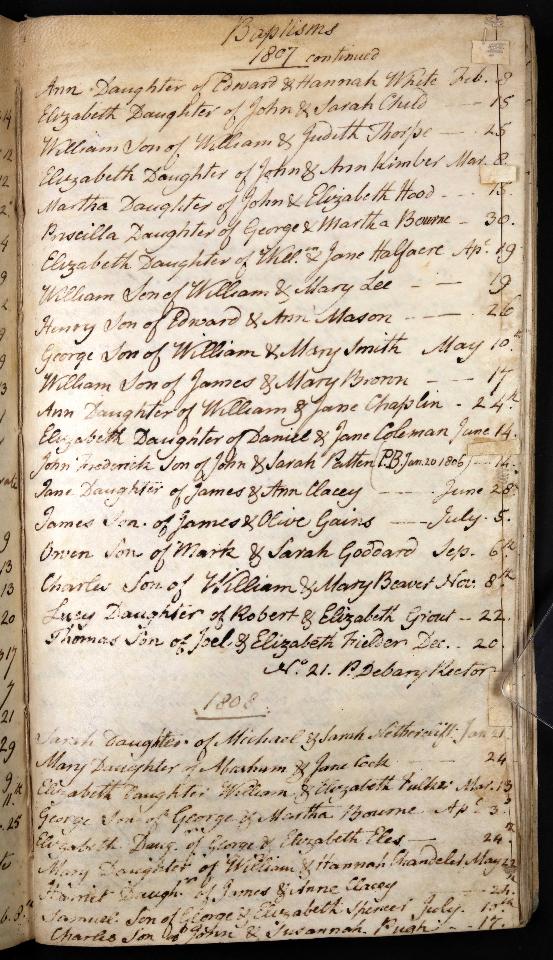 Baptisms
1807 continued
Ann Daughter of Edward & Hannah White Feb. 8
Elizabeth Daughter of John & Sarah Child -- 15
William Son of William & Judith Thorpe -- 25
Elizabeth Daughter of John & Ann Kimber Mar. 8
Martha Daughter of John & Elizabeth Hood - - 15
Priscilla Daughter of George & Martha Bourne - 30
Elizabeth Daughter of Will.m & Jane Halfacre Ap.l 19
William Son of William & Mary Lee - - 19
Henry Son of Edward & Ann Mason - - - 26
George Son of William & Mary Smith May 10th
William Son of James & Mary Brown - - 17
Ann Daughter of William & Jane Chaplin - 24th
Elizabeth Daughter of Daniel & Jane Coleman June 14
John Frederick Son of John & Sarah Patten (P.B. Jan. 20 1806) - 14
Jane Daughter of James & Ann Clacey - - June 28
James Son of James & Olive Gains - - July 5
Owen Son of Mark & Sarah Goddard Sep. 6th
Charles Son of William & Mary Beaver Nov. 8th
Lucy Daughter of Robert & Elizabeth Grout - 22
Thomas Son of Joel & Elizabeth Fielder Dec. - 20
No. 21. P. Debary Rector
1808
Sarah Daughter of Michael & Sarah Jan 21
Mary Daughter of Abraham & Jane Cook - - 24
Elizabeth Daughter William & Elizabeth Fulker Mar. 13
George Son of George & Martha Bourne Ap.l 3
Elizabeth Daug. of George & Elizabeth Eles - 24
Mary Daughter of William & Hannah May 22
Harriet Daugh.r of James & Anne Clacey - - 24
Samuel Son of George & Elizabeth Spencer July 10th
Charles Son of John & Susannah Pugh - - 17